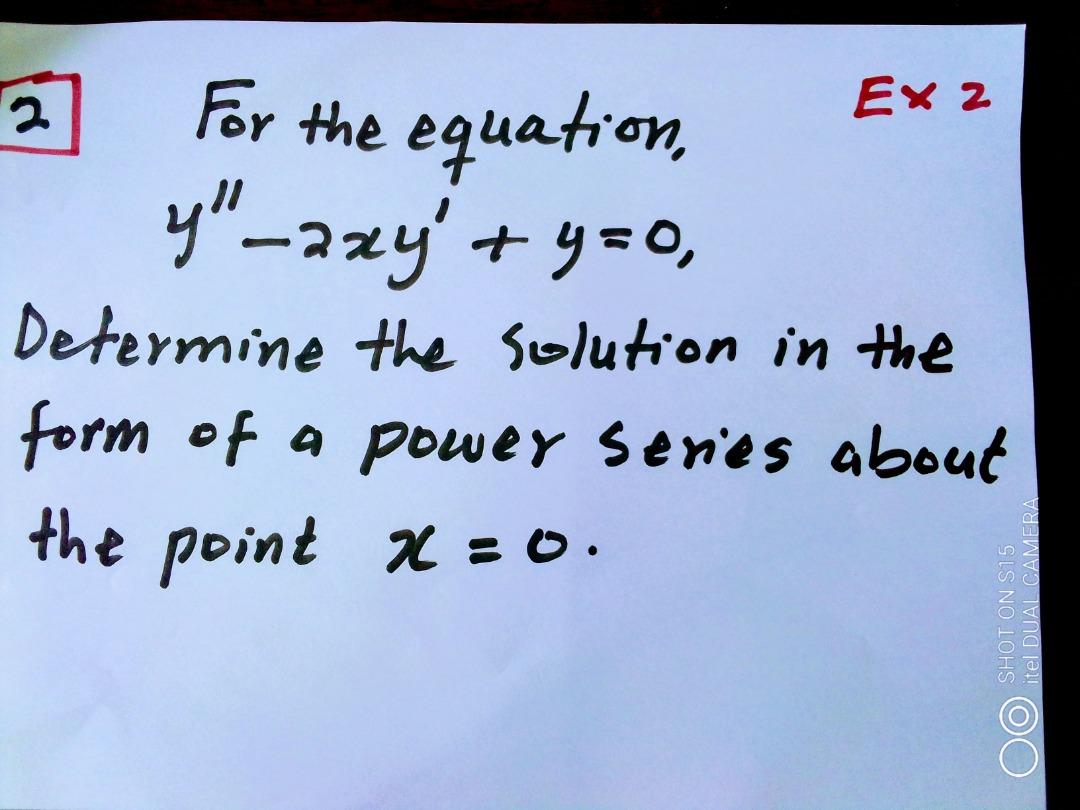 2
Ex 2
For the equation,
y" - 2xy' + y = 0,
Determine the solution in the
form of a power series about
the point x = 0.
SHOT ON S15
itel DUAL CAMERA